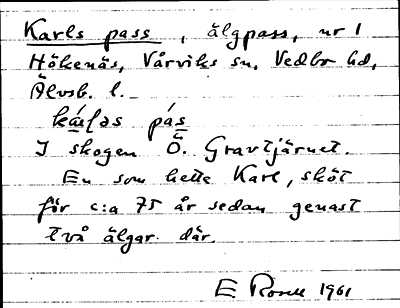 Karls pass, älgpass, nr 1
Hökenäs, Vårviks sn, Vedbo hd,
Älvsb. l.
ká̱ɩ̱əs pás̱
I skogen Ö. Gravtjärnet.
En som hette Karl, sköt
för c:a 75 år sedan genast
två älgar där.
E Rosell 1961